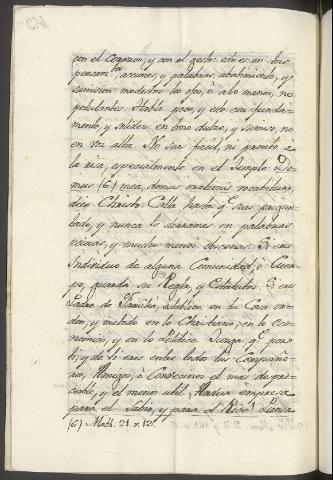 con el corazon, y con el gesto: esto es en tus
pensam.tos, acciones, y palabras, abatimiento, y
sumision modestos los ojos, ò à lo menos, no
petulantes. Habla poco, y eso con funda-
mento, y solidez en tono dulce, y sumiso, no
en voz alta. No seas facil, ni pronto à
la risa, especialmente en el Templo. Do-
mus (6) mea, domus orationis vocabitur,
dice Christo. Calla hasta q.e seas pregun-
tado, y nunca te derrames en palabras
ociosas, y mucho menos obscenas. Si eres
Individuo de alguna Comunidad, ò Cuer-
po, guarda su Regla, y Estatutos. Si eres
Padre de Familia, establece en tu Casa or-
den, y metodo en lo Christiano, en lo eco-
nomico, y en lo Politico. Juzga q.e pa-
ra ti, y de ti eres entre todos tus Compañe-
ros, Amigos, ò Convecinos el mas despre-
ciable, y el menos util. Ardua empresa
para el Sabio, y para el Rico!
(6) Math. 21. v. 13.